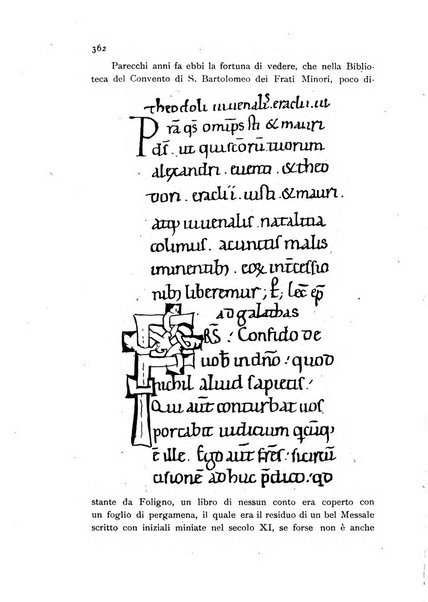 362
Parecchi anni fa ebbi la fortuna di vedere, che nella Biblio-
teca del Convento di S. Bartolomeo dei Frati Minori, poco di-
theodoli iuuenal&. eraclii. ui
Pr̄a q̄s om̄ps sc̄i & mauri
d̄s. ut qui sc̄orū tuorum
alexandri. euenti & theo
doli. eraclii. iusti & mauri
atq; iuuenalis natalitia
colimus. a cunctis malis
iminentib; eoꝝ int̄cessio
nib; liberemur; P; Lec̄ ep̄
ad galathas
FRS̄. Confido de
uob̄ in dn̄o. quod
nichil aliud sapietis.
Qui aut̄ conturbat uos
portabit iudicium q̄cūq;
ē ille. Ego aut̄ fr̄es. si circū
cisionē adhuc p̄dico
stante da Foligno, un libro di nessun conto era coperto con
un foglio di pergamena, il quale era il residuo di un bel Messale
scritto con iniziali miniate nel secolo XI, se forse non è anche